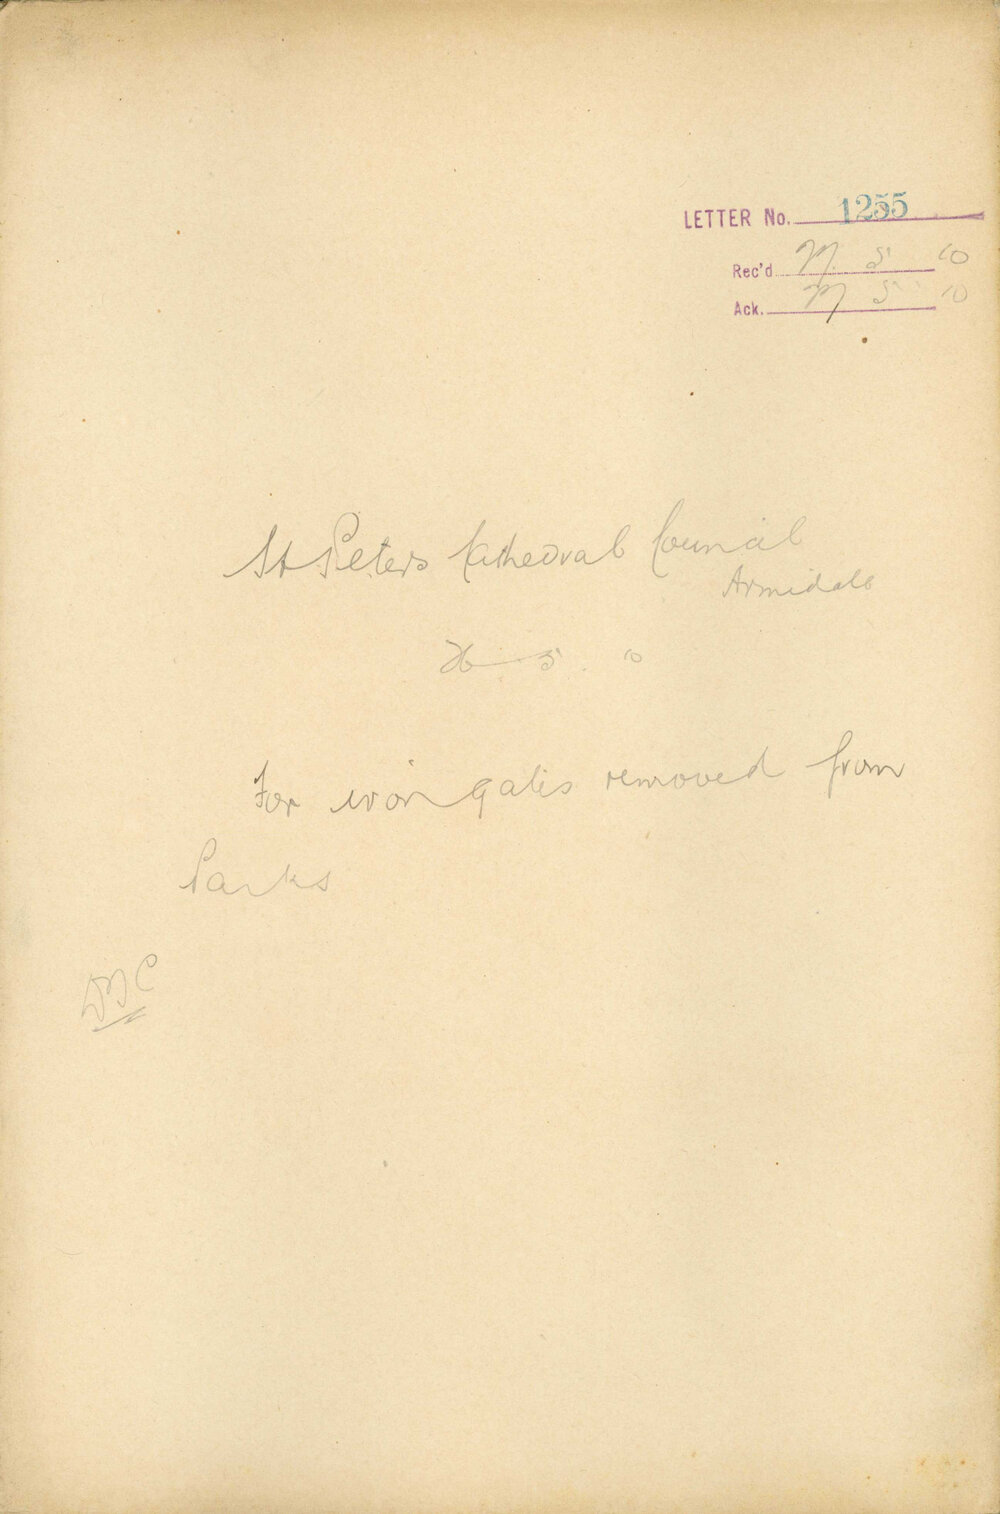 LETTER No. 1255
Rec'd 5 10
Ack. 5 10
St Peters Cathedral Council
Armidale
26 5. 10
For iron gates removed from
Parks